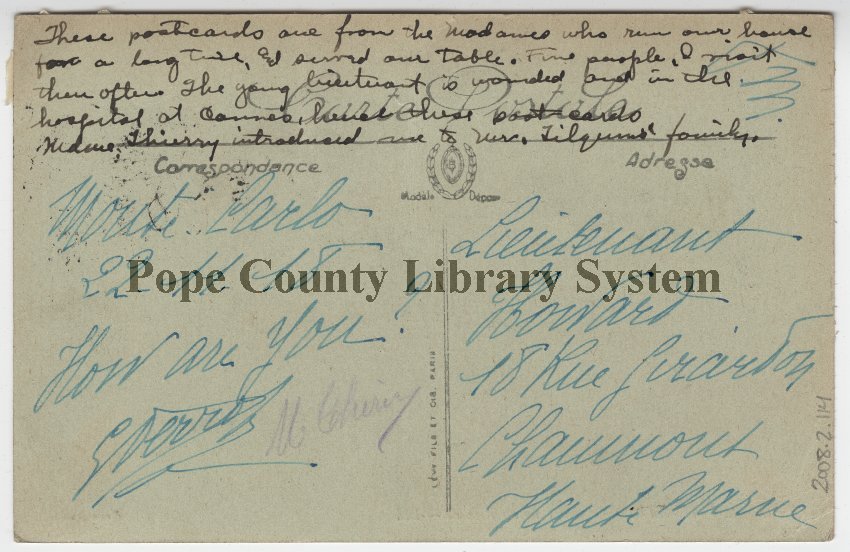 These postcards are from the Madames who run our house
for a long time, & served our table. Fine people, I visit
them often. The young lieutenant is wounded and in the
hospital at Cannes, hence these postcards
Mame. Thierry introduced me to Mrs. family.
Carte Postale
Correspondance
Adresse
Modèle Déposé
Monte-Carlo
22-11-18
How are you?
M Thierry
LÉVY FILS ET CIE. PARIS
Lieutenant
Howard
18 Rue Girardon
Chaumont
Haute Marne
2008.2.114
Pope County Library System